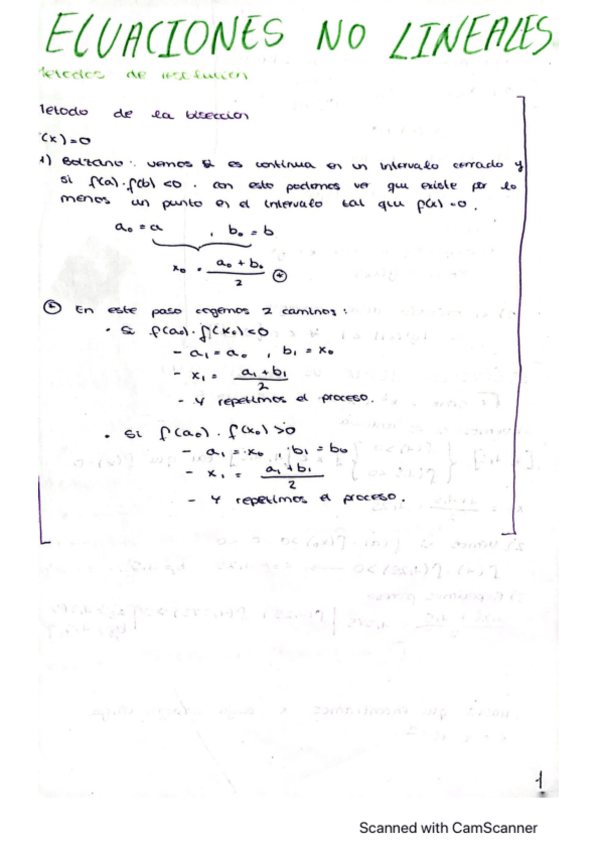 ECUACIONES NO LINEALES
de resolución
etodo de la bisección
(x)=0
1) Bolzano: vemos si es continua en un intervalo cerrado y
si f(a)·f(b) <0. con esto podemos ver que existe por lo
menos un punto en el intervalo tal que f(x)=0.
a₀ = a , b₀ = b
x₀ = (a₀ + b₀)/2
En este paso cogemos 2 caminos:
• Si f(a₀)·f(x₀)<0
- a₁ = a₀ , b₁ = x₀
- x₁ = (a₁ + b₁)/2
- Y repetimos el proceso.
• Si f(a₀)·f(x₀)>0
- a₁ = x₀ b₁ = b₀
- x₁ = (a₁ + b₁)/2
- Y repetimos el proceso.
1
Scanned with CamScanner